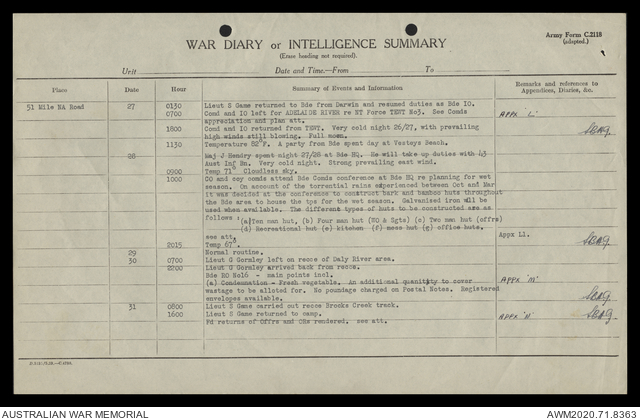 Army Form C.2118
(adapted.)
WAR DIARY or INTELLIGENCE SUMMARY
(Erase heading not required).
Unit Date and Time.—From To
Place Date Hour Summary of Events and Information Remarks and references to
Appendices, Diaries, &c.
51 Mile NA Road 27 0130 Lieut S Game returned to Bde from Darwin and resumed duties as Bde IO.
0700 Comd and IO left for ADELAIDE RIVER re NT Force TEWT No3. See Comds APPX 'L'
appreciation and plan att.
1800 Comd and IO returned from TEWT. Very cold night 26/27, with prevailing
high winds still blowing. Full moon.
1130 Temperature 82°F. A party from Bde spent day at Vesteys Beach.
28 Maj J Hendry spent night 27/28 at Bde HQ. He will take up duties with 43
Aust Inf Bn. Very cold night. Strong prevailing east wind.
0900 Temp 71° Cloudless sky.
1000 CO and coy comds attend Bde Comds conference at Bde HQ re planning for wet
season. On account of the torrential rains experienced between Oct and Mar
it was decided at the conference to construct bark and bamboo huts throughout
the Bde area to house the tps for the wet season. Galvanised iron will be
used when available. The different types of huts to be constructed are as
follows: (a) Ten man hut, (b) Four man hut (WO & Sgts) (c) Two man hut (offrs)
(d) Recreational hut (e) kitchen (f) mess hut (g) office huts.
see att. Appx L1.
2015 Temp 67°
29 Normal routine.
30 0700 Lieut G Gormley left on recce of Daly River area.
2200 Lieut G Gormley arrived back from recce.
Bde RO No16 - main points incl.
(a) Condemnation - Fresh vegetable. An additional quantity to cover APPX 'M'
wastage to be alloted for. No poundage charged on Postal Notes. Registered
envelopes available.
31 0800 Lieut S Game carried out recce Brocks Creek track.
1600 Lieut S Game returned to camp. APPX 'N'
Fd returns of Offrs and ORs rendered. see att.
AUSTRALIAN WAR MEMORIAL AWM2020.71.8363